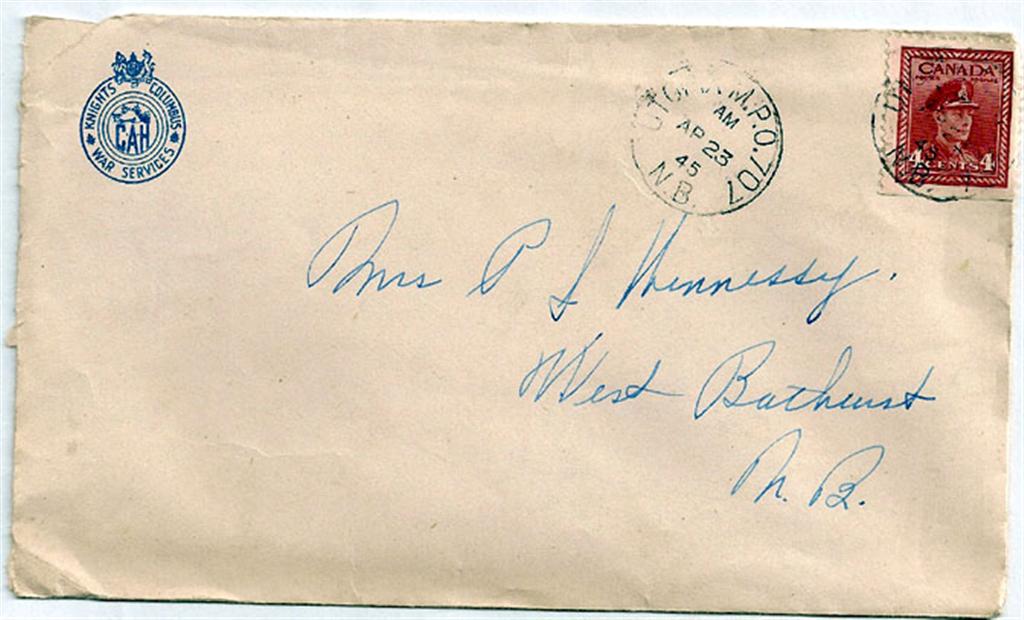 KNIGHTS COLUMBUS
CAH
WAR SERVICES
M.P.O. 707
AM
AP 23
45
N.B.
CANADA
POSTES POSTAGE
4 CENTS 4
Mrs P J Hennessy.
West Bathurst
N. B.